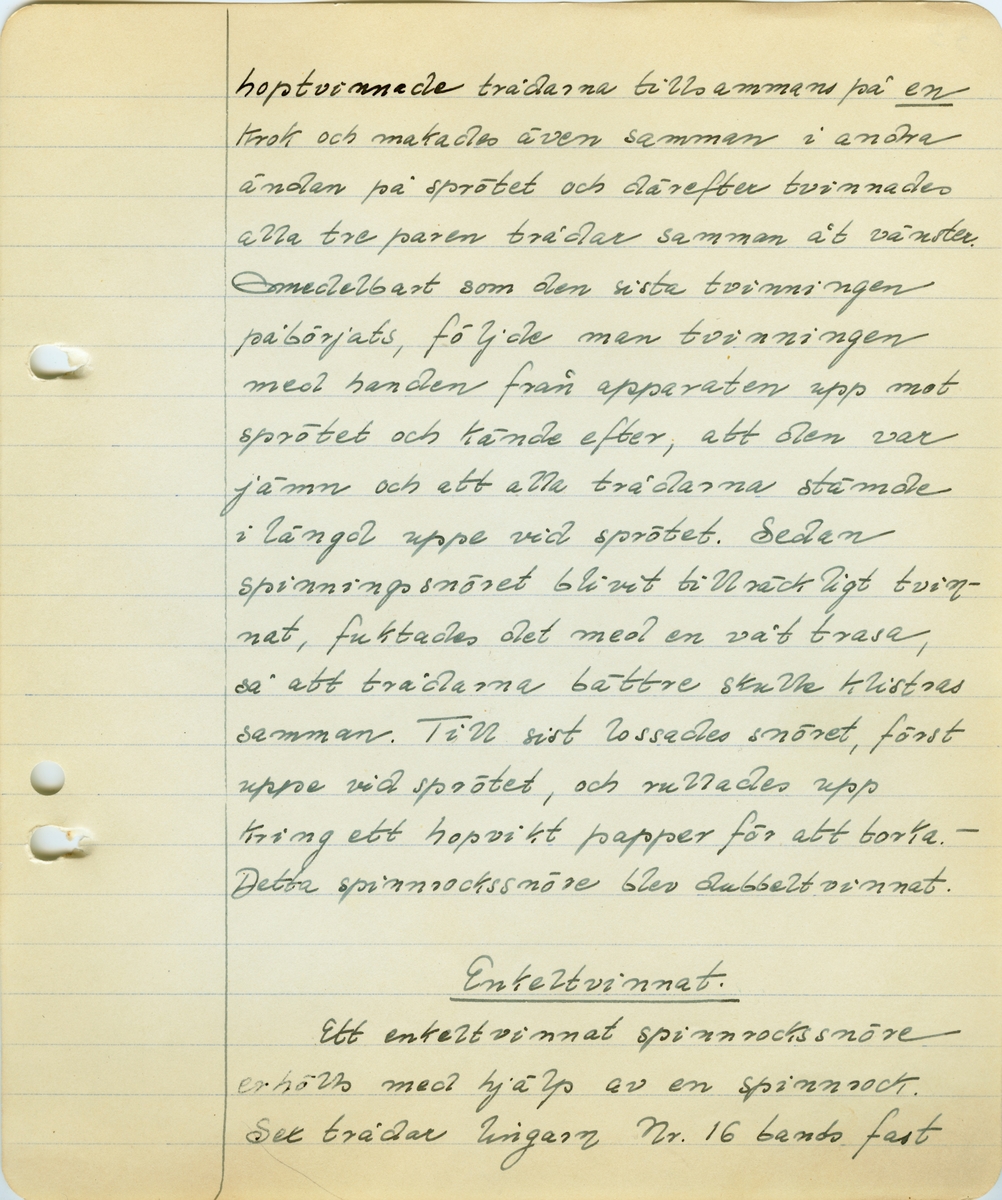 hoptvinnade trådarna tillsammans på en
krok och makades även samman i andra
ändan på sprötet och därefter tvinnades
alla tre paren trådar samman åt vänster.
Omedelbart som den sista tvinningen
påbörjats, följde man tvinningen
med handen från apparaten upp mot
sprötet och kände efter, att den var
jämn och att alla trådarna stämde
i längd uppe vid sprötet. Sedan
spinningssnöret blivit tillräckligt tvin-
nat, fuktades det med en våt trasa,
så att trådarna bättre skulle klistras
samman. Till sist lossades snöret, först
uppe vid sprötet, och rullades upp
kring ett hopvikt papper för att torka. —
Detta spinnrockssnöre blev dubbeltvinnat.
Enkeltvinnat.
Ett enkeltvinnat spinnrockssnöre
erhölls med hjälp av en spinnrock.
Sex trådar lingarn Nr. 16 bands fast